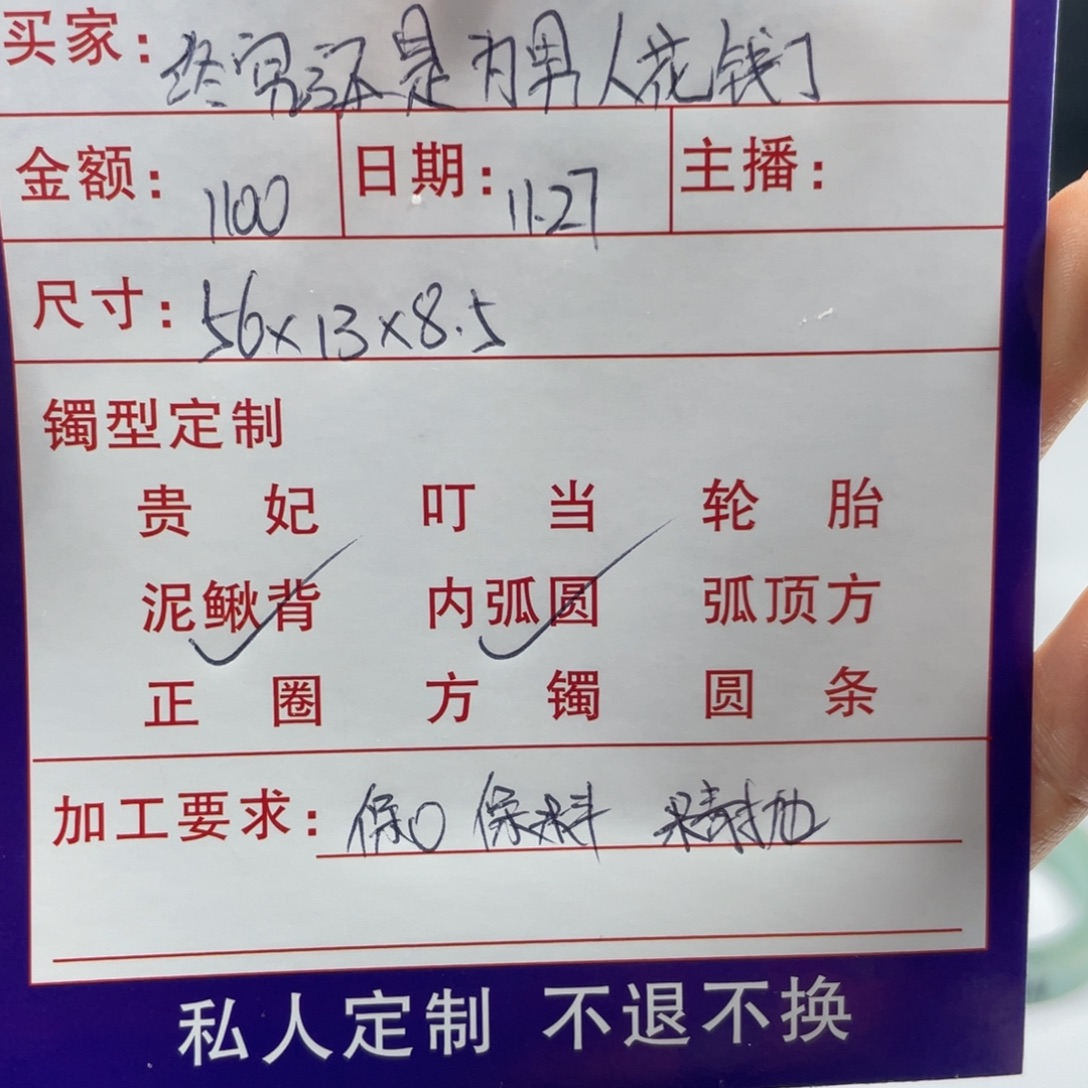 买家：终究还是为男人花钱了
金额：1100 日期：11.27 主播：
尺寸：56×13×8.5
镯型定制
贵妃 叮当 轮胎
泥鳅背 内弧圆 弧顶方
正圈 方镯 圆条
加工要求：保口 保料 精抛
私人定制 不退不换